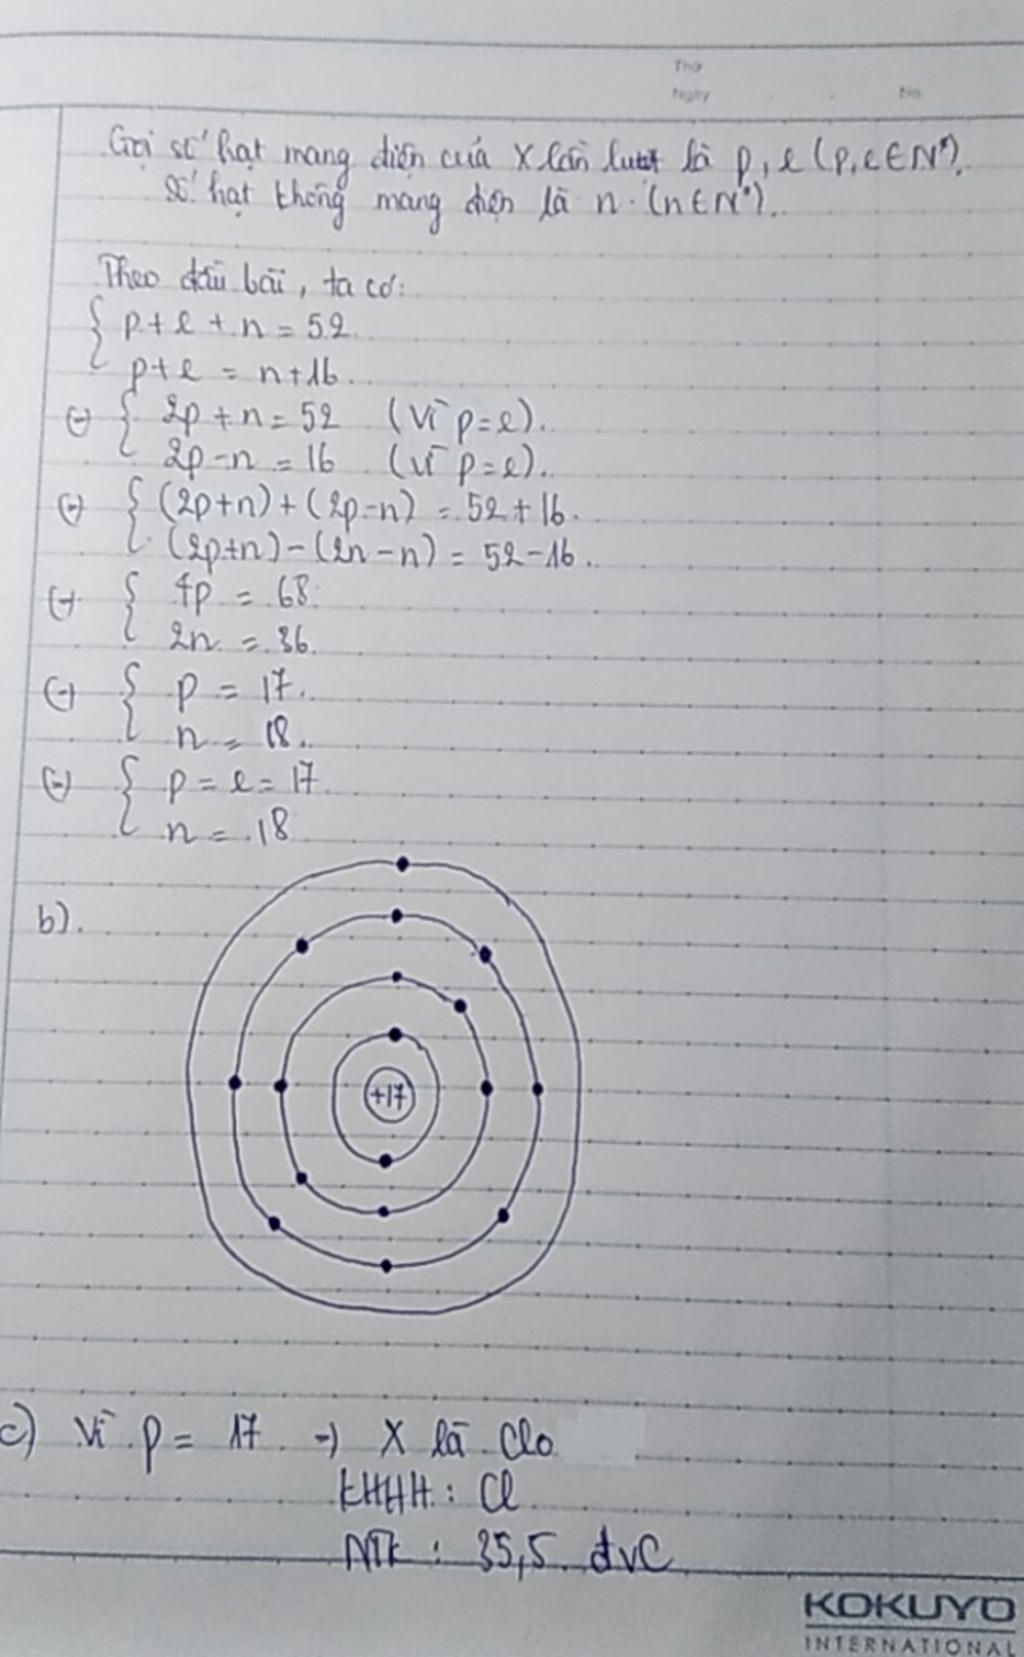 Thứ
Ngày No.
Gọi số hạt mang điện của X lần lượt là p, e (p, e ∈ N*).
Số hạt không mang điện là n. (n ∈ N*).
Theo đầu bài, ta có:
{ p + e + n = 52.
p + e = n + 16.
(=) { 2p + n = 52 (Vì p = e).
2p - n = 16 (Vì p = e).
(=) { (2p+n) + (2p-n) = 52 + 16.
(2p+n) - (2n-n) = 52 - 16.
(=) { 4p = 68.
2n = 36.
(=) { p = 17.
n = 18.
(=) { p = e = 17.
n = 18
b).
+17
c) Vì p = 17 -) X là Clo
KHHH: Cl
NTK: 35,5 đvC
KOKUYO
INTERNATIONAL